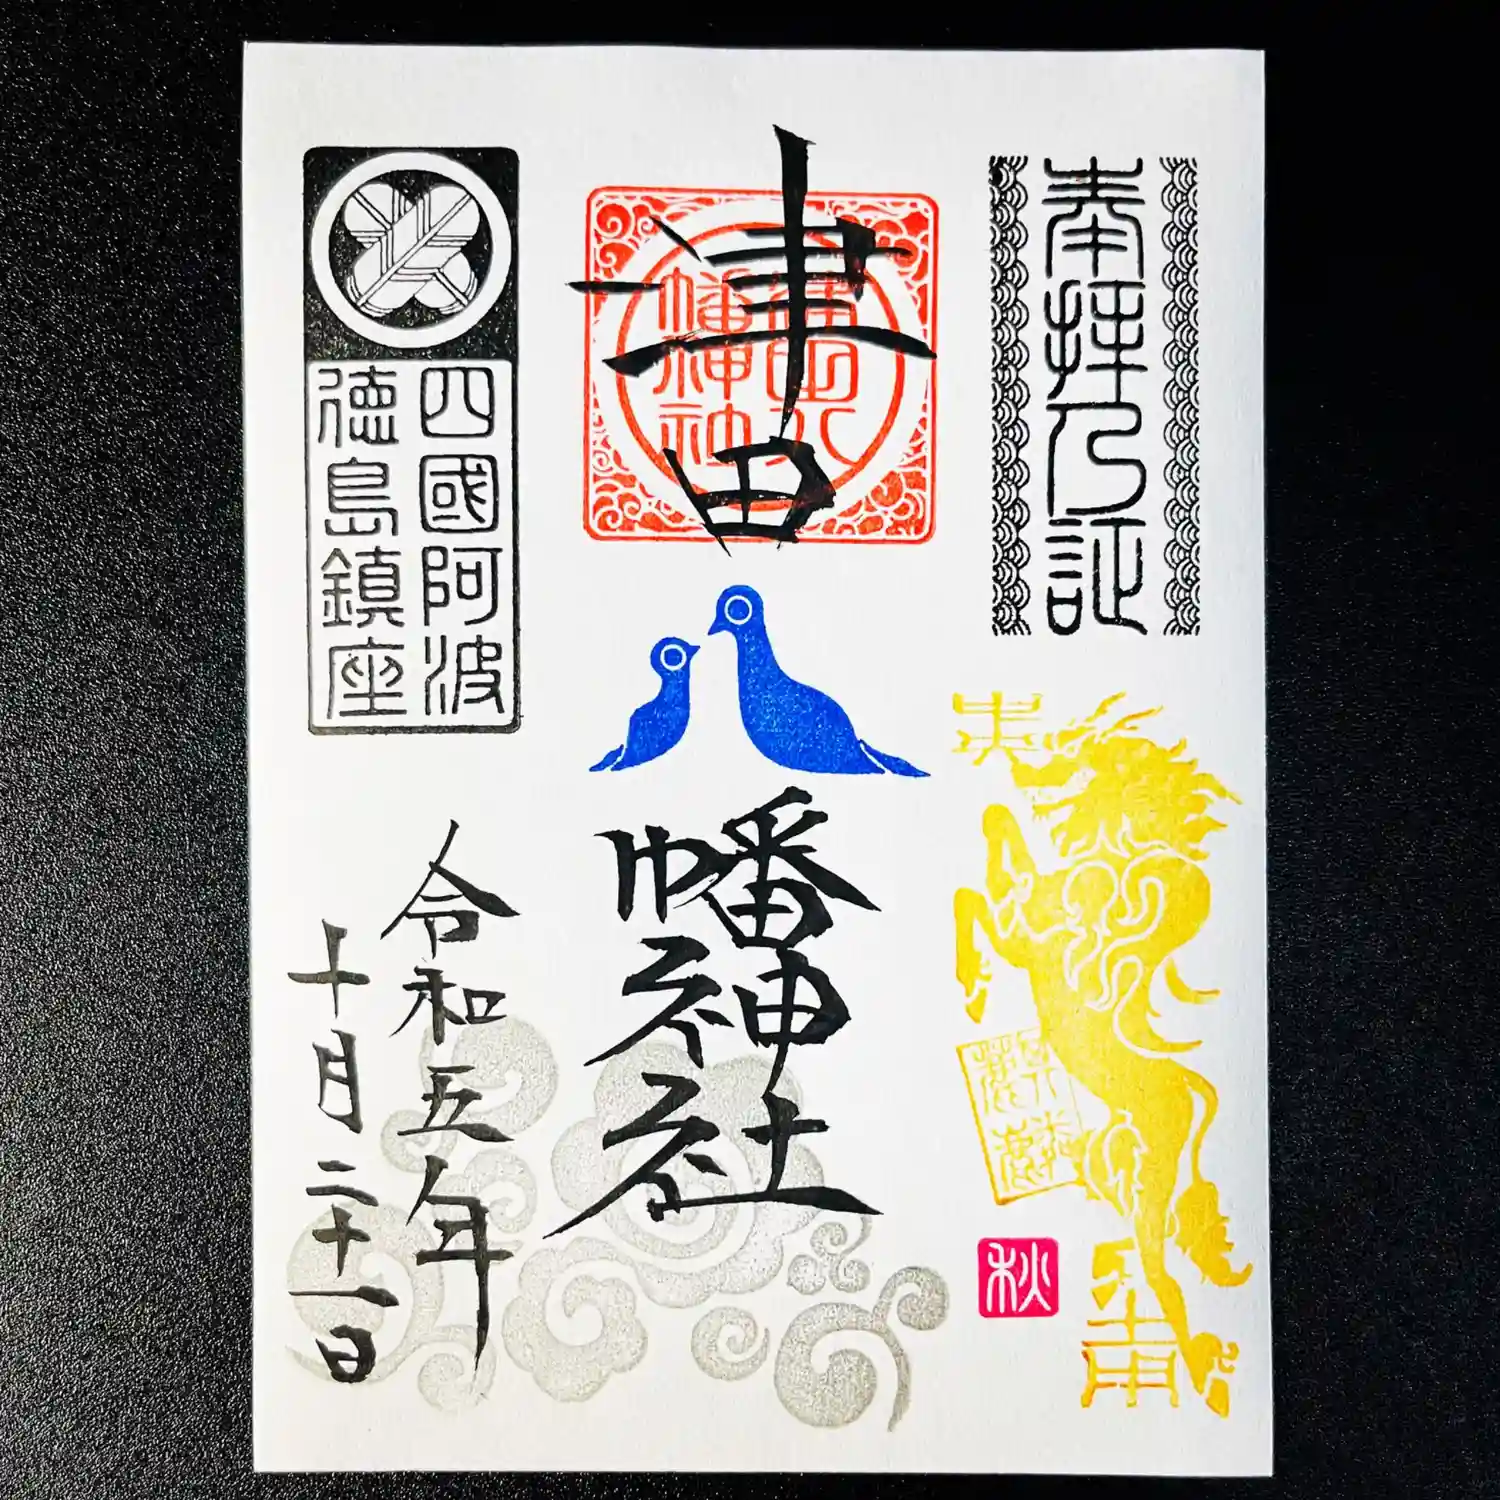 奉拝之証
央
麒麟
秋
津田
津田八
幡神社
幡神社
四國阿波
徳島鎮座
令和五年
十月二十一日